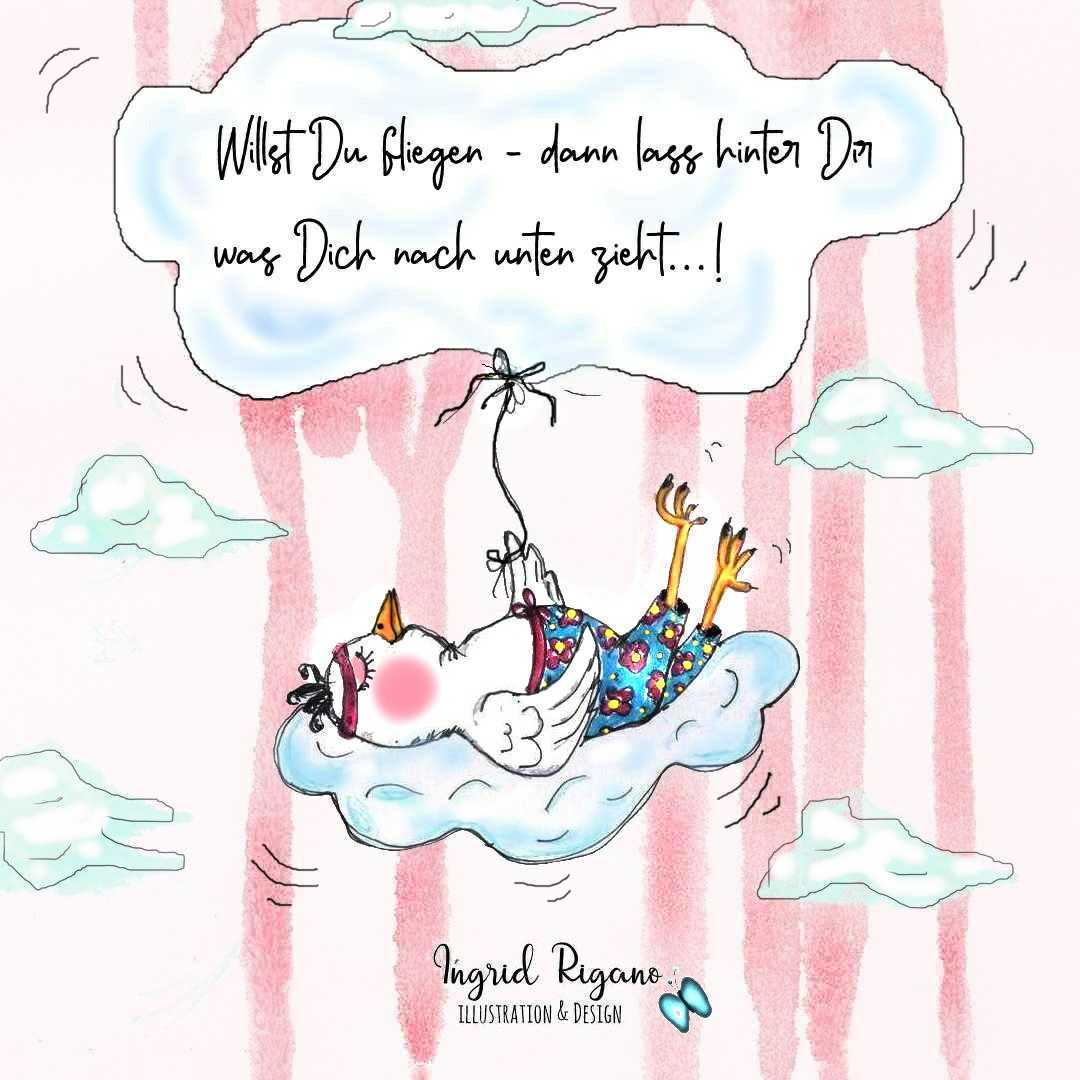 Willst Du fliegen - dann lass hinter Dir
was Dich nach unten zieht...!
Ingrid Rigano
ILLUSTRATION & DESIGN